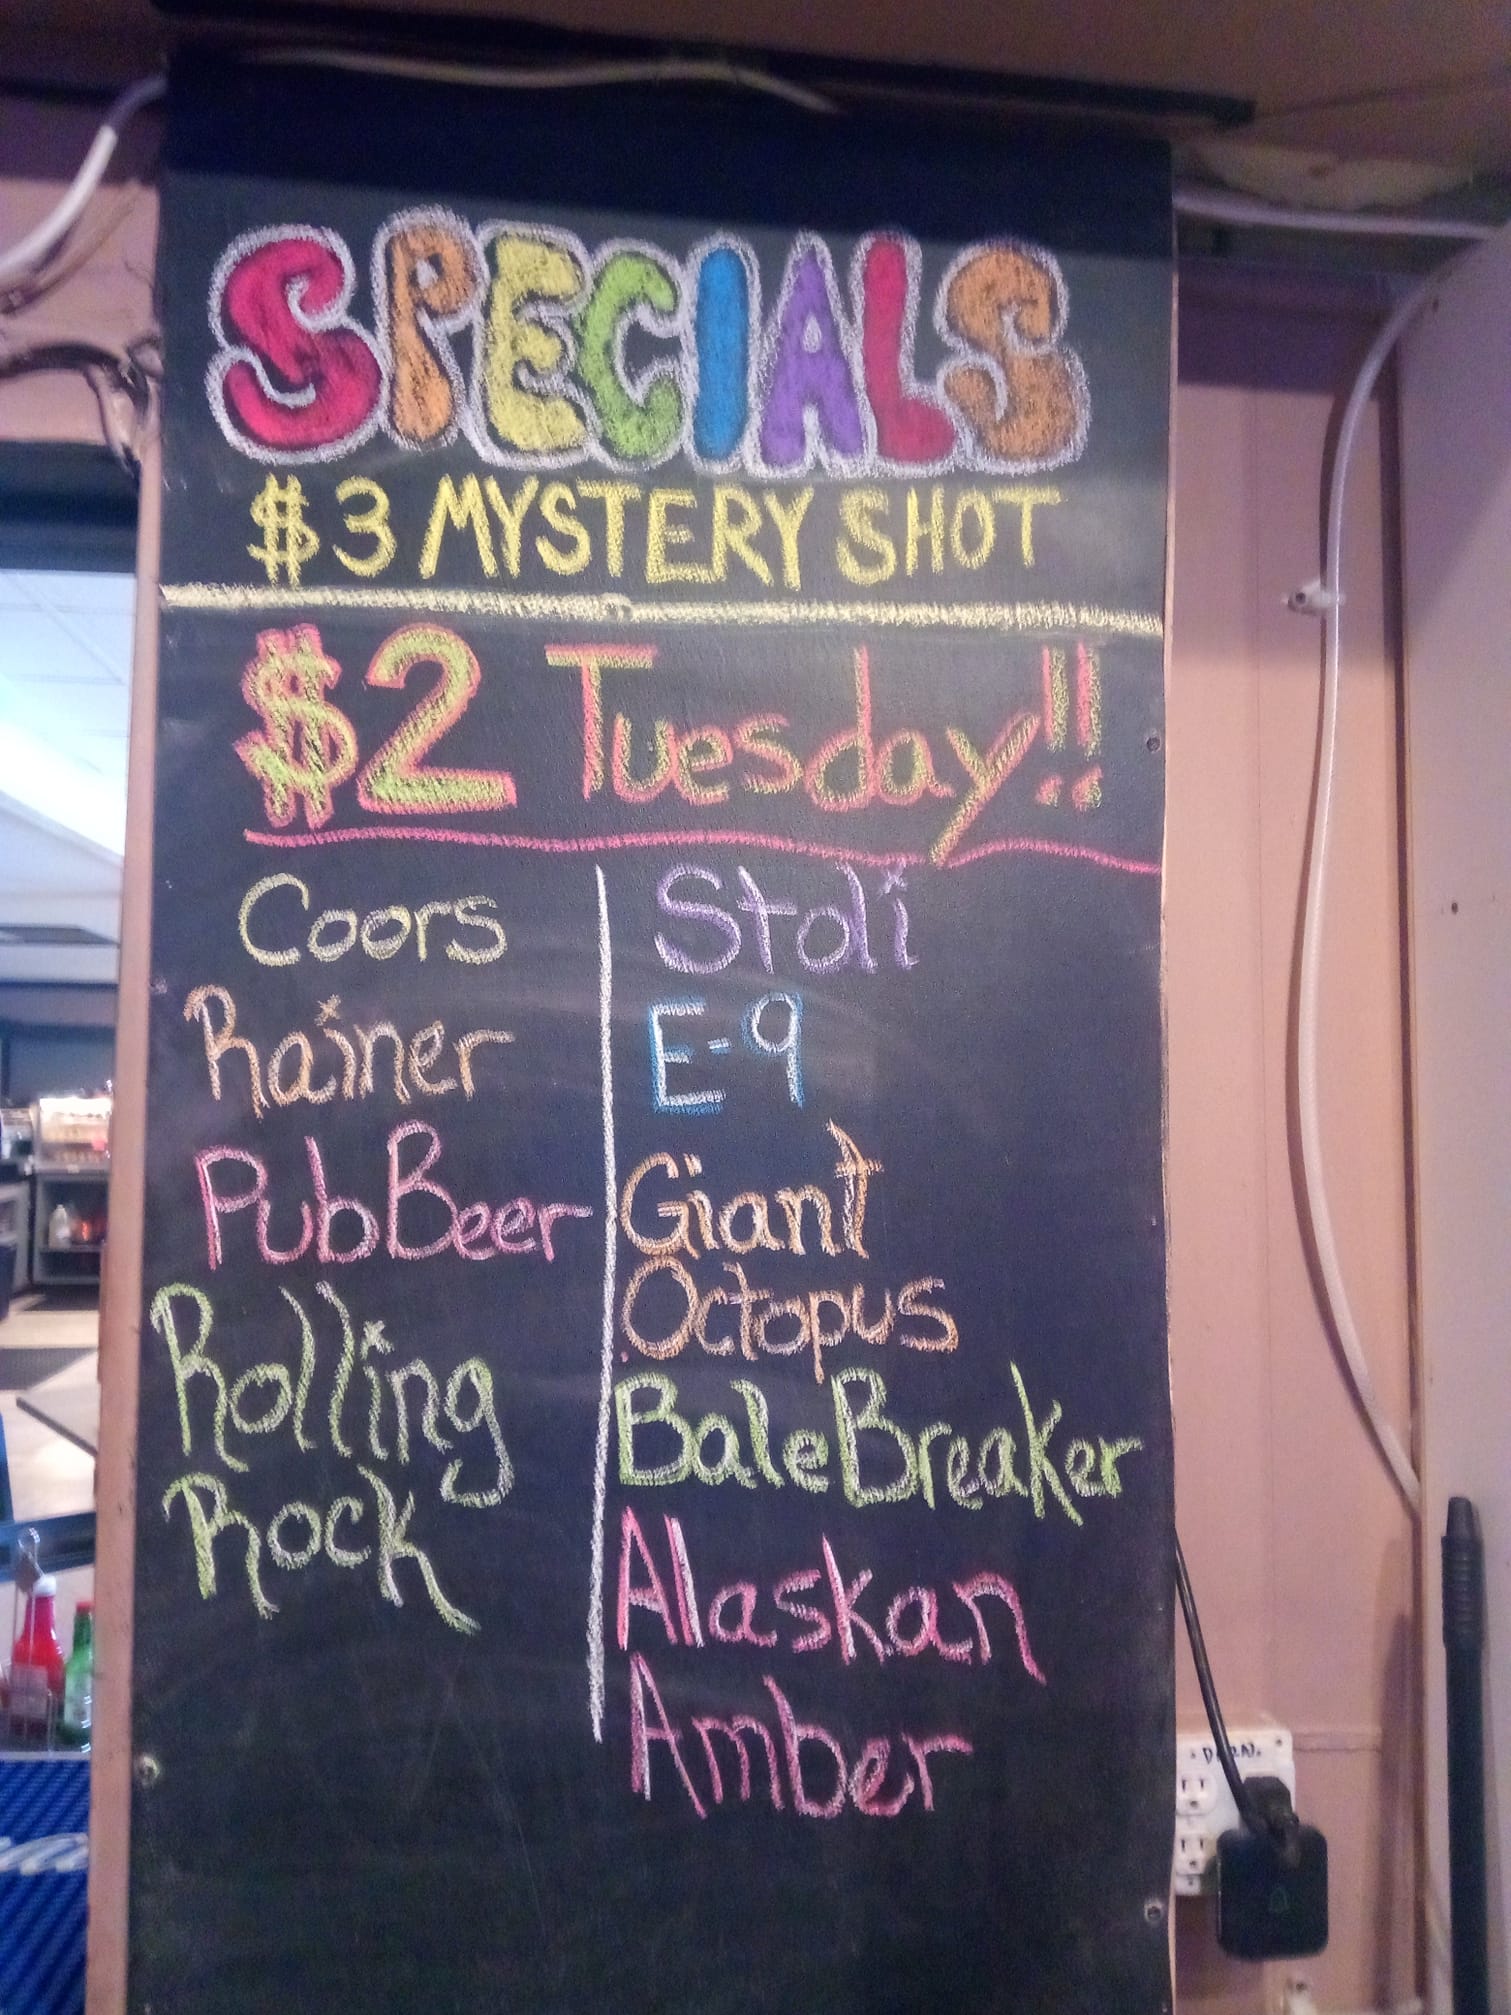 SPECIALS
$3 MYSTERY SHOT
$2 Tuesday!!
Coors
Rainer
PubBeer
Rolling
Rock
Stoli
E-9
Giant
Octopus
BaleBreaker
Alaskan
Amber